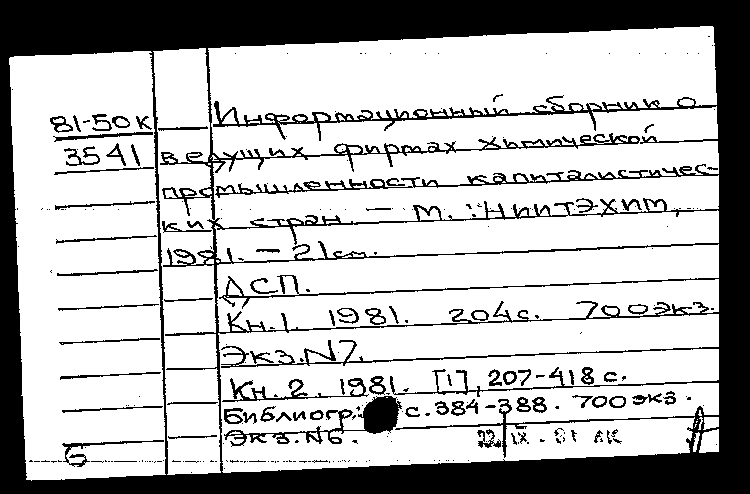 81-50к Информационный сборник о
3541 ведущих фирмах химической
промышленности капиталистичес-
ких стран. — М.: НИИТЭХИМ,
1981. — 21 см.
ДСП.
Кн. 1. 1981. 204 с. 700 экз.
Экз. N7.
Кн. 2. 1981. [1], 207-418 с.
Библиогр.: с. 384-388. 700 экз.
Экз. N6.
22 IX. 81 ЛК
Б